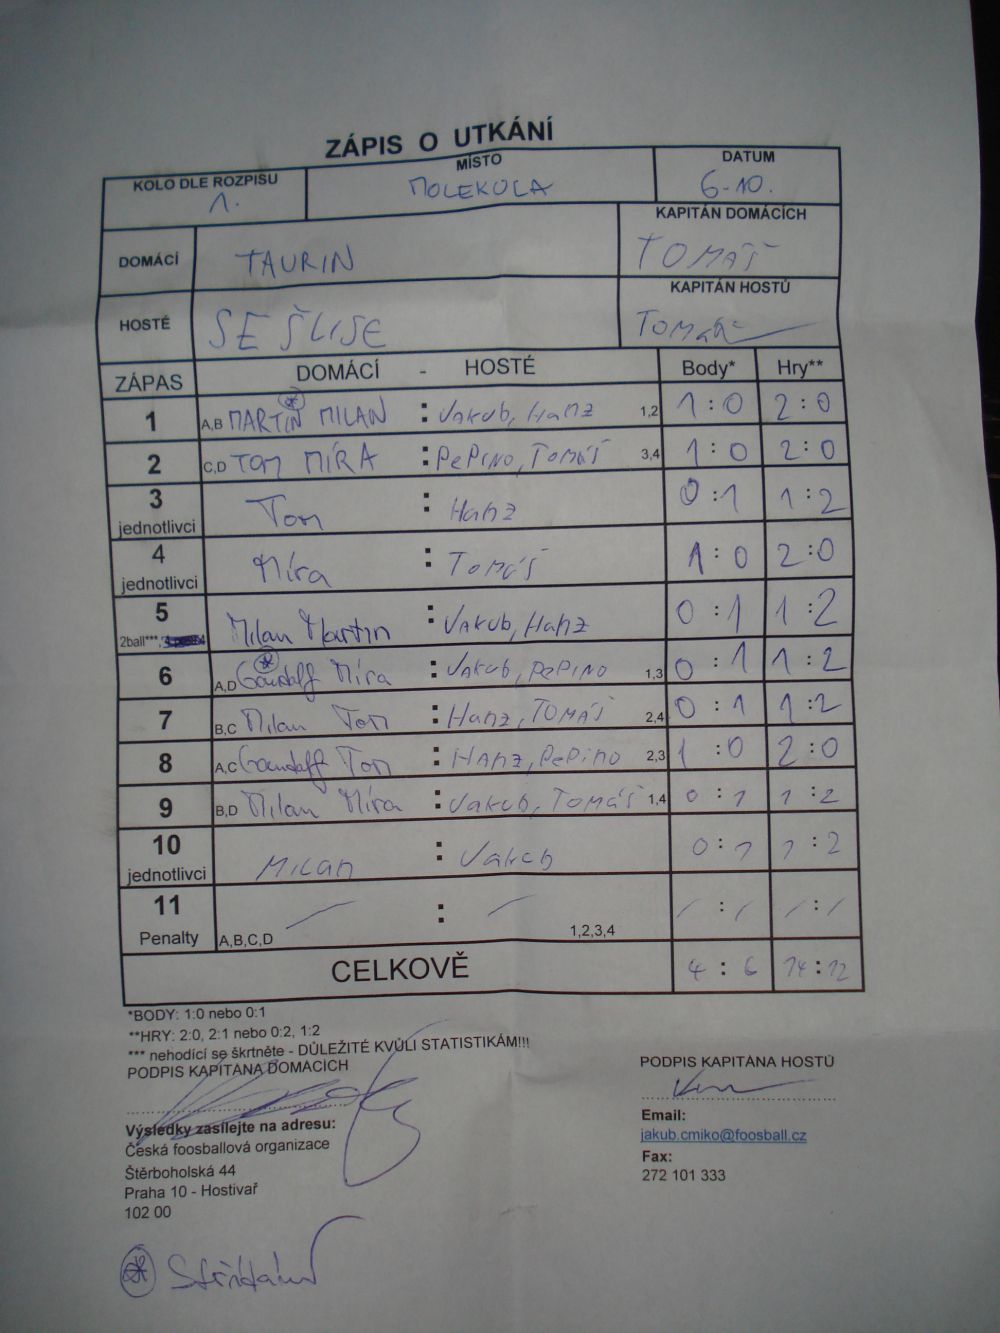 ZÁPIS O UTKÁNÍ
KOLO DLE ROZPISU MÍSTO DATUM
1. MOLEKULA 6-10.
DOMÁCÍ TAURIN KAPITÁN DOMÁCÍCH
TOMÁŠ
HOSTÉ SE ŠLISE KAPITÁN HOSTŮ
Tomáš
ZÁPAS DOMÁCÍ - HOSTÉ Body* Hry**
1 A,B MARTIN MILAN : Jakub, Hanz 1,2 1:0 2:0
2 C,D TOM MÍRA : PePiNO, TOMÁŠ 3,4 1:0 2:0
3 jednotlivci Tom : Hanz 0:1 1:2
4 jednotlivci Míra : TOMÁŠ 1:0 2:0
5 2ball***, Milan Martin : Jakub, Hanz 0:1 1:2
6 A,D Gandalf Míra : Jakub, PePiNO 1,3 0:1 1:2
7 B,C Milan Tom : Hanz, TOMÁŠ 2,4 0:1 1:2
8 A,C Gandalf Tom : HANZ, PePiNO 2,3 1:0 2:0
9 B,D Milan Míra : Jakub, TOMÁŠ 1,4 0:1 1:2
10 jednotlivci Milan : Jakub 0:1 1:2
11 Penalty A,B,C,D / : / 1,2,3,4 / : / / : /
CELKOVĚ 4:6 14:12
*BODY: 1:0 nebo 0:1
**HRY: 2:0, 2:1 nebo 0:2, 1:2
*** nehodící se škrtněte - DŮLEŽITÉ KVŮLI STATISTIKÁM!!!
PODPIS KAPITÁNA DOMÁCÍCH PODPIS KAPITÁNA HOSTŮ
Výsledky zasílejte na adresu: Email:
Česká foosballová organizace jakub.cmiko@foosball.cz
Štěrboholská 44 Fax:
Praha 10 - Hostivař 272 101 333
102 00
Střídání